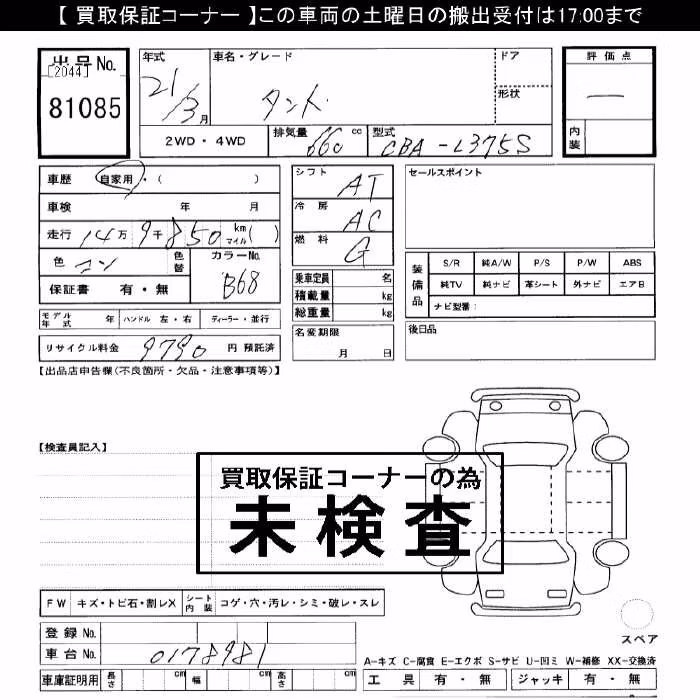 【 買取保証コーナー 】この車両の土曜日の搬出受付は17:00まで
出品No.
[2044]
81085
年式
21/3月
車名・グレード
タント
ドア
形状
2WD・4WD
排気量 660 cc
型式 CBA-L375S
評価点
―
内装
車歴 自家用・( )
車検 年 月
走行 14万9千850 km マイル( )
色 コン 色替 カラーNo. B68
保証書 有・無
シフト AT
冷房 AC
燃料 G
乗車定員 名
積載量 kg
総重量 kg
名変期限 月 日
セールスポイント
装備品
S/R 純A/W P/S P/W ABS
純TV 純ナビ 革シート 外ナビ エアB
ナビ型番:
後日品
モデル年式 年 ハンドル 左・右 ディーラー・並行
リサイクル料金 9790 円 預託済
【出品店申告欄(不良箇所・欠品・注意事項等)】
【検査員記入】
買取保証コーナーの為
未検査
FW キズ・トビ石・割レX シート内装 コゲ・穴・汚レ・シミ・破レ・スレ
登録No.
車台No. 0178981
車庫証明用 長さ cm 幅 cm 高さ cm
スペア
A-キズ C-腐食 E-エクボ S-サビ U-凹ミ W-補修 XX-交換済
工具 有・無 ジャッキ 有・無